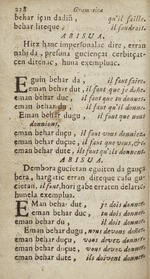 218 Gram-tica
behar içan dadin, qu'il faille.
behar liteque, il faudroit.
ABISUA.
Hitz hanc impersonalac dire, erran
nahi da, presuna guciençat cerbitçat-
çen direnac, hunа exempluac.
Eguin behar da, il faut faire.
eman behar dut, il faut que je donne
eman behar duc, il faut que tu donnes
eman behar du, il faut
Eman behar dugu, il faut que nous
donnions,
eman behar duçu, il faut vous donniez
eman behar duçue, il faut vous, &c
eman behar dute, il faut qu'ils donnent
ABISUA.
Dembora gucietan eguiten da gauça
bera, hargatic erran diteque çalu gu-
cietan, il faut, hori gabe erraten delaric
bamela exempluz.
EMan behar dut, je dois donner
eman behar duc, tu dois donner
eman behar du, il doit donner
Eman behar dugu, nous devons donner
eman behar duçu, vous devez donner
eman behar duçue, vous devez donner
eman behar dute, ils doivent donner